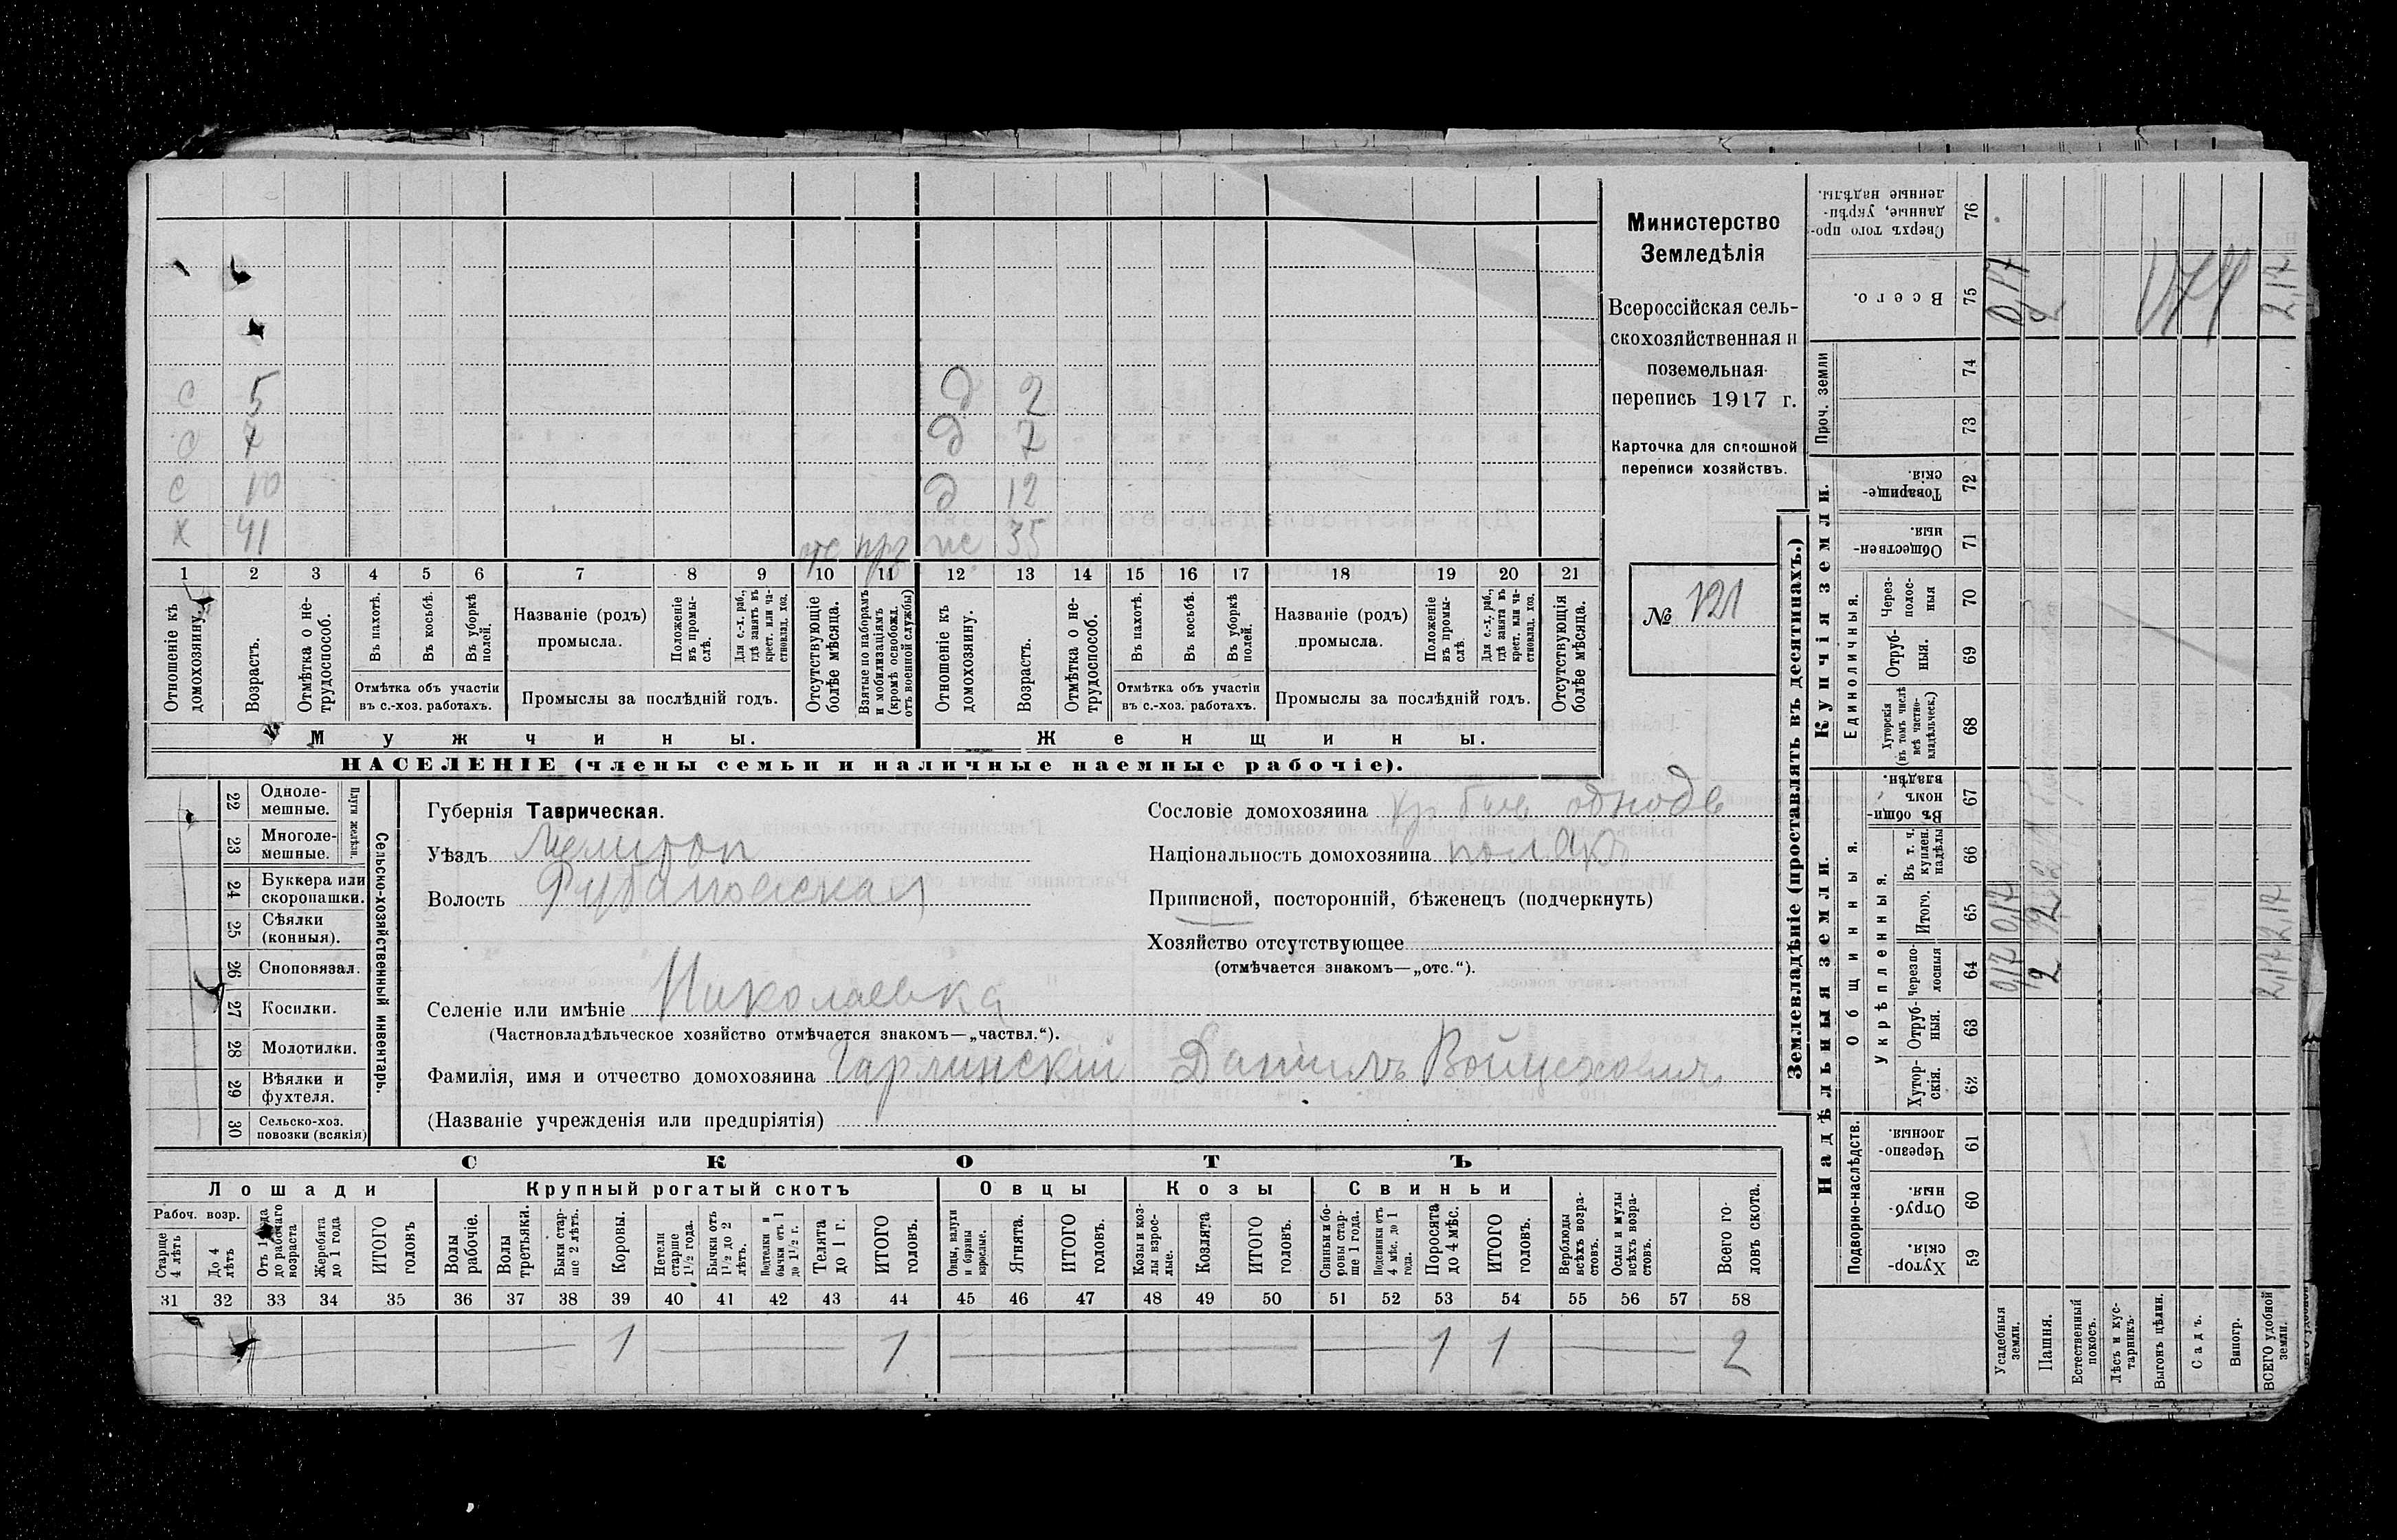 Министерство
Земледѣлія
Всероссійская сель-
скохозяйственная и
поземельная
перепись 1917 г.
Карточка для сплошной
переписи хозяйствъ.
№ 121
с 5 д 2
7 д 7
с 10 д 12
х 41 отс 35
1 2 3 4 5 6 7 8 9 10 11 12 13 14 15 16 17 18 19 20 21
Отношеніе къ домохозяину.
Возрастъ.
Отмѣтка о не-трудоспособ.
Въ пахотѣ.
Въ косьбѣ.
Въ уборкѣ полей.
Отмѣтка объ участіи
въ с.-хоз. работахъ.
Названіе (родъ)
промысла.
Положеніе въ промы-слѣ.
Для с.-х. раб., гдѣ занятъ въ крест. или ча-стновлад. хоз.
Промыслы за послѣдній годъ.
Отсутствующіе болѣе мѣсяца.
Взятые по наборамъ и мобилизаціямъ (кромѣ освобожд. отъ военной службы)
Отношеніе къ домохозяину.
Возрастъ.
Отмѣтка о не-трудоспособ.
Въ пахотѣ.
Въ косьбѣ.
Въ уборкѣ полей.
Отмѣтка объ участіи
въ с.-хоз. работахъ.
Названіе (родъ)
промысла.
Положеніе въ промы-слѣ.
Для с.-х. раб., гдѣ занята въ крест. или ча-стновлад. хоз.
Промыслы за послѣдній годъ.
Отсутствующія болѣе мѣсяца.
Мужчины.
Женщины.
НАСЕЛЕНІЕ (члены семьи и наличные наемные рабочіе).
22 Одноле-мешные.
23 Многоле-мешные.
Плуги желѣзн.
24 Буккера или скоропашки.
25 Сѣялки (конныя).
26 Сноповязал.
27 Косилки.
28 Молотилки.
29 Вѣялки и фухтеля.
30 Сельско-хоз. повозки (всякія)
Сельско-хозяйственный инвентарь.
Губернія Таврическая.
Уѣздъ Мелитоп
Волость Рубановская
Селеніе или имѣніе Николаевка
(Частновладѣльческое хозяйство отмѣчается знакомъ—„частвл.“).
Фамилія, имя и отчество домохозяина Гарлинскій Данилъ Войцеховичъ
(Названіе учрежденія или предпріятія)
Сословіе домохозяина кр быв однодв
Національность домохозяина полякъ
Приписной, посторонній, бѣженецъ (подчеркнуть)
Хозяйство отсутствующее
(отмѣчается знакомъ—„отс.“).
СКОТЪ
Лошади
Рабоч. возр.
Старше 4 лѣтъ
До 4 лѣтъ
Отъ 1 года до рабочаго возраста
Жеребята до 1 года
ИТОГО головъ
Крупный рогатый скотъ
Волы рабочіе.
Волы третьяки.
Быки стар-ше 2 лѣтъ.
Коровы.
Нетели старше 1½ года.
Бычки отъ 1½ до 2 лѣтъ.
Подтелки и бычки отъ 1 до 1½ г.
Телята до 1 г.
ИТОГО головъ.
Овцы
Овцы, валухи и бараны взрослые.
Ягнята.
ИТОГО головъ.
Козы
Козы и коз-лы взрос-лые.
Козлята
ИТОГО головъ.
Свиньи
Свиньи и бо-ровы стар-ше 1 года.
Подсвинки отъ 4 мѣс. до 1 года.
Поросята до 4 мѣс.
ИТОГО головъ.
Верблюды всѣхъ возра-стовъ.
Ослы и мулы всѣхъ возра-стовъ.
Всего го-ловъ скота.
31 32 33 34 35 36 37 38 39 40 41 42 43 44 45 46 47 48 49 50 51 52 53 54 55 56 57 58
1 1 1 1 2
Землевладѣніе (проставлять въ десятинахъ.)
Надѣльныя земли.
Купчія земли.
Проч. земли
Подворно-наслѣдств.
Общинныя.
Укрѣпленныя.
Единоличныя.
Хутор-скія. 59
Отруб-ныя. 60
Черезпо-лосныя. 61
Хутор-скія. 62
Отруб-ныя. 63
Черезпо-лосныя 64
Итого. 65
Въ т. ч. куплен. надѣлы 66
Въ общи-номъ владѣн. 67
Хуторскія (въ томъ числѣ всѣ частно-владѣльческ.) 68
Отруб-ныя. 69
Через-полос-ныя 70
Обществен-ныя. 71
Товарище-скія 72
73
74
Всего. 75
Сверхъ того про-данные, укрѣп-ленные надѣлы. 76
Усадебныя земли. 0,17 0,17 0,17
Пашня. 2 2 2
Естественный покосъ.
Лѣсъ и кус-тарникъ.
Выгонъ цѣлин.
Садъ.
Виногр.
ВСЕГО удобной земли. 2,17 2,17 2,17